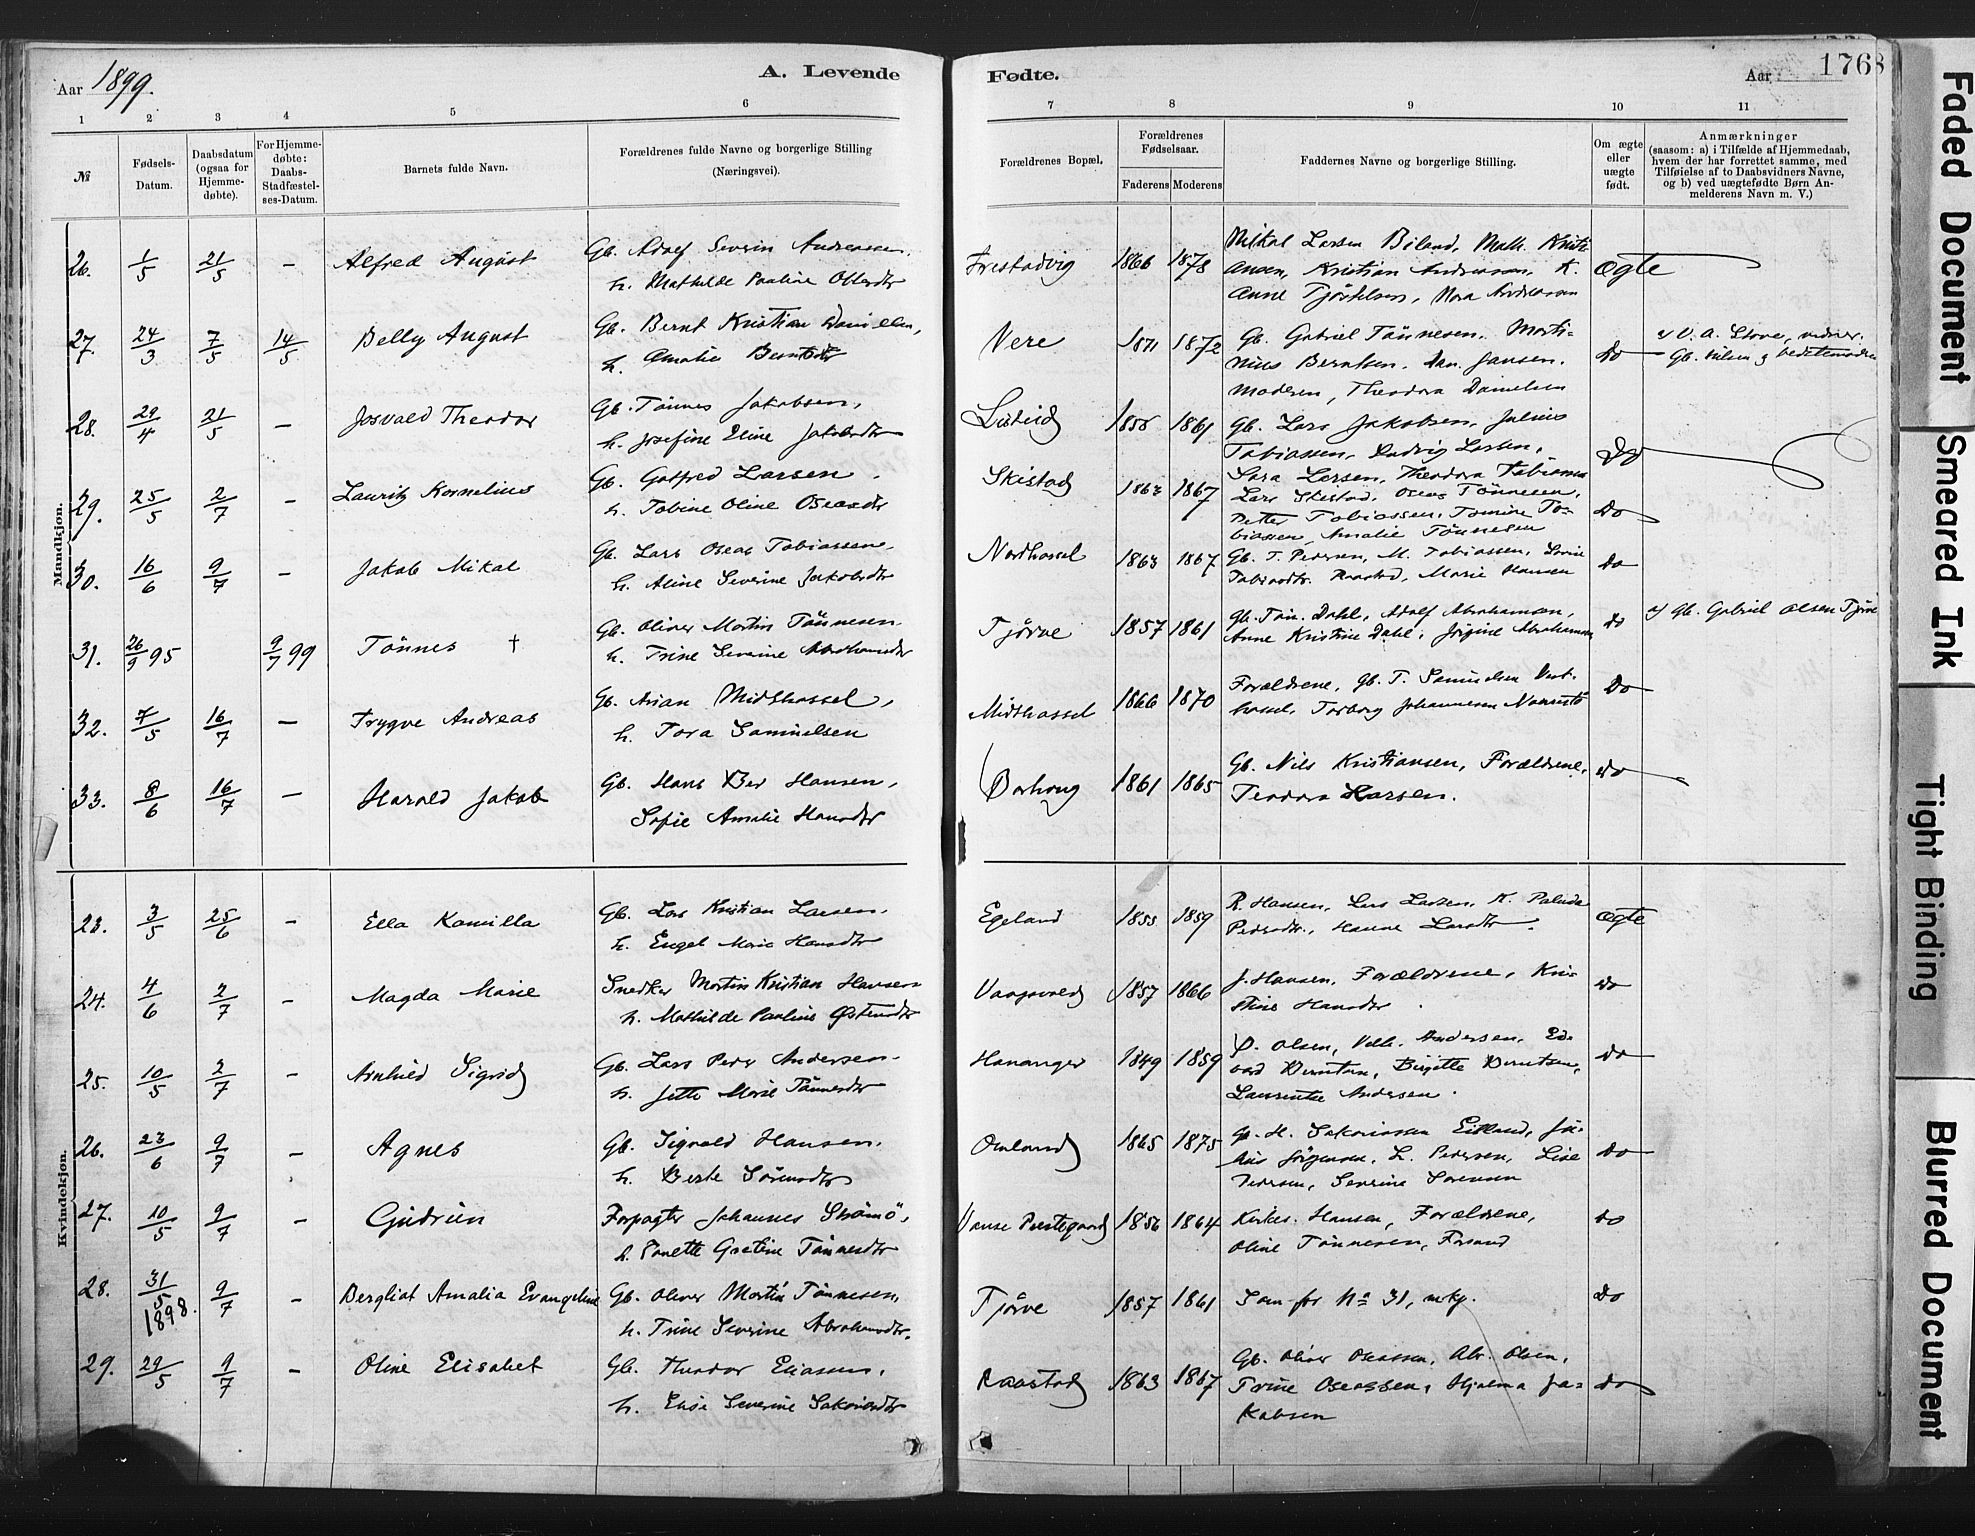 Aar 1899.
A. Levende Fødte.
Aar 176
1 2 3 4 5 6 7 8 9 10 11
№
Fødsels-Datum.
Daabsdatum (ogsaa for Hjemme-døbte).
For Hjemme-døbte: Daabs-Stadfæstel-ses-Datum.
Barnets fulde Navn.
Forældrenes fulde Navne og borgerlige Stilling (Næringsvei).
Forældrenes Bopæl.
Forældrenes Fødselsaar.
Faderens Moderens
Faddernes Navne og borgerlige Stilling.
Om ægte eller uægte født.
Anmærkninger
(saasom: a) i Tilfælde af Hjemmedaab,
hvem der har forrettet samme, med
Tilføielse af to Daabsvidners Navne,
og b) ved uægtefødte Børn An-
melderens Navn m. V.)
Mandkjøn.
26. 1/5 21/5 — Alfred August
Gb. Adolf Severin Andreasen,
h. Mathilde Pauline
1866 1878
Mikal Larsen Biland, Math. Kristi-
ansen, Kristian Andreasen, K.
Anne, Nora Andreasen
ægte
27. 24/3 7/5 14/5 Belly August
Gb. Bernt Kristian Danielsen,
h. Amalie Berntsdtr
Vere 1871 1872
Gb. Gabriel Tönnesen, Morti-
nius Berntsen, Dan. Jansen,
Moderen, Theodora Danielsen
do
28. 29/4 21/5 — Josvald Theodor
Gb. Tönnes Jakobsen,
h. Josefine Eline Jakobsdtr
1858 1861
Gb. Lars Jakobsen, Julius
Tobiassen, Ludvig Larsen,
Sara Larsen, Theodora Tobiassen
Do
29. 25/5 2/7 — Lauritz Kornelius
Gb. Gotfred Larsen,
h. Tobine Oline Oseasdtr
Skistad 1863 1867
Lars Skistad, Oseas Tönnesen,
Petter Tobiassen, Tomine To-
biassen, Amalie Tönnesen
do
30. 16/6 9/7 — Jakob Mikal
Gb. Lars Oseas Tobiassen,
h. Aline Severine Jakobsdtr
Nordhassel 1863 1867
Gb. T. Pedersen, M. Tobiassen,
Tobiasdtr. Raastad, Marie Hansen
do
31. 26/9 95 9/7 99 Tönnes †
Gb. Oliver Martin Tönnesen
h. Trine Severine Abrahamsdtr
Tjørve 1857 1861
Gb. Tön. Dahl, Adolf Abrahamsen,
Anne Kristine Dahl, Jørgine Abrahamsen
do
a) Gb. Gabriel Olsen Tjørve
32. 7/5 16/7 — Trygve Andreas
Gb. Arian Midthassel,
h. Tora Samuelsen
Midthassel 1866 1870
Forældrene, Gb. T. Samuelsen Vest-
hassel, Torborg Johannesen
Do
33. 8/6 16/7 — Harald Jakob
Gb. Hans Hansen,
Sofie Amalie Hansdtr
Borhaug 1861 1865
Gb. Nils Kristiansen, Forældrene,
Teodora Larsen.
do
Kvindekjøn.
23. 3/5 25/6 — Ella Kamilla
Gb. Lars Kristian Larsen,
h. Engel Marie Hansdtr
Egeland 1855 1859
R. Hansen, Lars Larsen, K. Palude
Pedersdtr., Hanne Larsdtr.
ægte
24. 4/6 2/7 — Magda Marie
Snedker Martin Kristian Hansen
h. Mathilde Pauline Østensdtr
Vaagsvold 1857 1866
J. Hansen, Forældrene, Kri-
stine Hansdtr.
do
25. 10/5 2/7 — Arnhild Sigrid
Gb. Lars Peder Andersen
h. Jette Marie Tönnesdtr
Hananger 1849 1859
O. Olsen, Vilh. Andersen, Ed-
vard Berntsen, Birgitte Berntsen,
Laurentze Andersen.
do
26. 23/6 9/7 — Agnes
Gb. Sigvald Hansen,
h. Berte Sörensdtr
Omland 1865 1875
Gb. H. Sakariassen Eitland, Ju-
lius Jörgensen, L. Pedersen, Lise
Pedersen, Severine Sorensen
do
27. 10/5 9/7 — Gudrun
Forpagter Johannes Strømø,
h. Gretine Tönnesdtr
Vanse Prestegaard 1856 1864
Kirkes. Hansen, Forældrene,
Oline Tönnesen,
do
28. 31/5 1898. 9/7 — Bergliot Amalia Evangeline
Gb. Oliver Martin Tönnesen,
h. Trine Severine Abrahamsdtr.
Tjørve 1857 1861
Som for No 31, mkj.
do
29. 29/5 9/7 — Oline Elisabet
Gb. Theodor Eliassen,
h. Elise Severine Sakariasdtr
Raastad 1863 1867
Gb. Oliver Oseassen, Abr. Olsen,
Trine Oseassen, Hjalma Ja-
kobsen
do
Faded Document
Smeared Ink
Tight Binding
Blurred Document